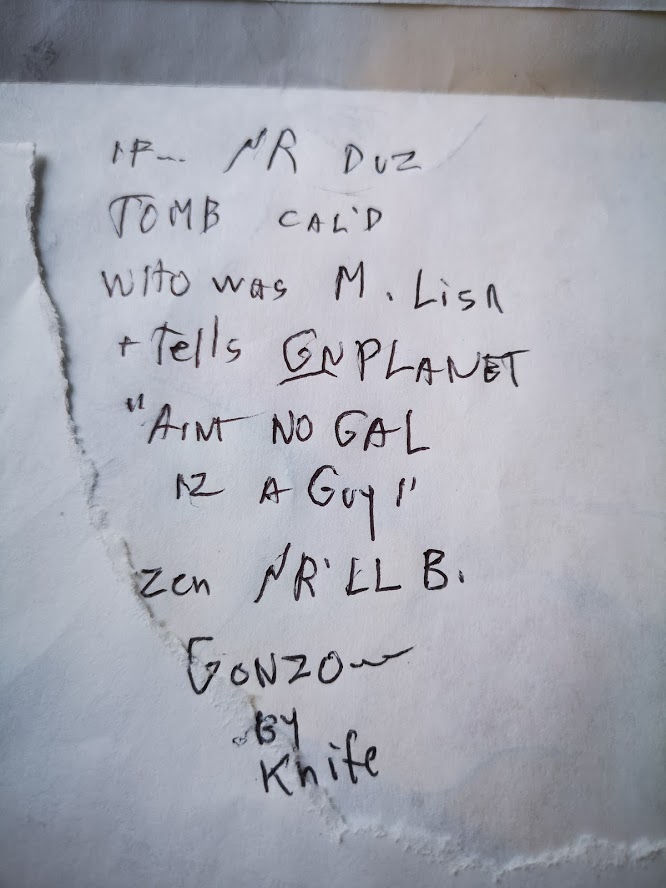 IF... NR DUZ
TOMB CAL'D
WHO was M. Lisa
+ Tells GNPLANET
"AINT NO GAL
IZ A Guy"
zen NR'LL B.
GONZO
BY
Knife